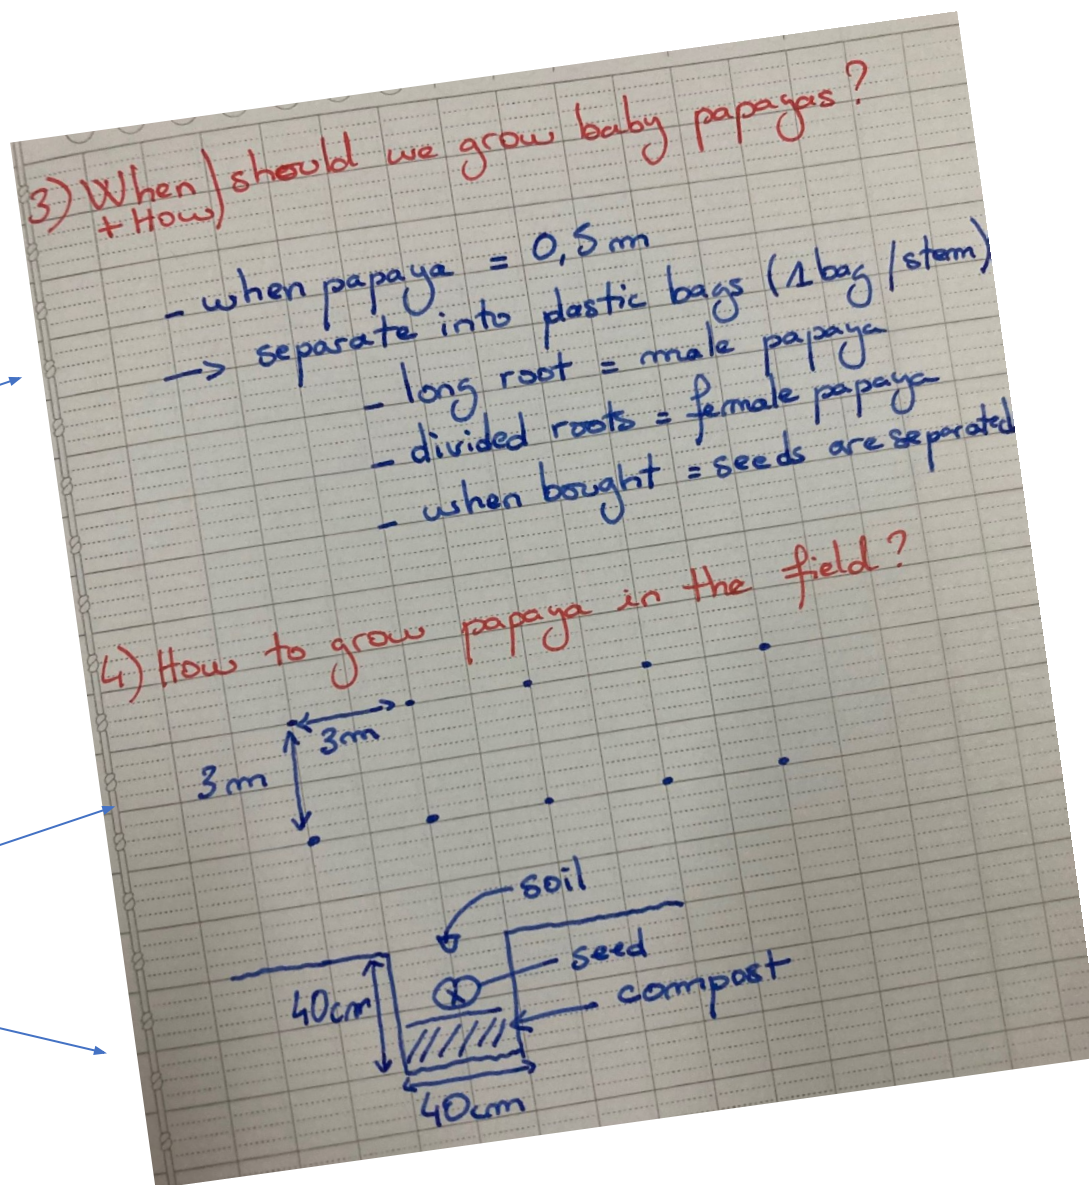 3) When should we grow baby papayas?
+ How
- when papaya = 0,5m
→ separate into plastic bags (1 bag / stem)
- long root = male papaya
- divided roots = female papaya
- when bought = seeds are separated
4) How to grow papaya in the field?
3m
3m
soil
seed
40cm
compost
40cm